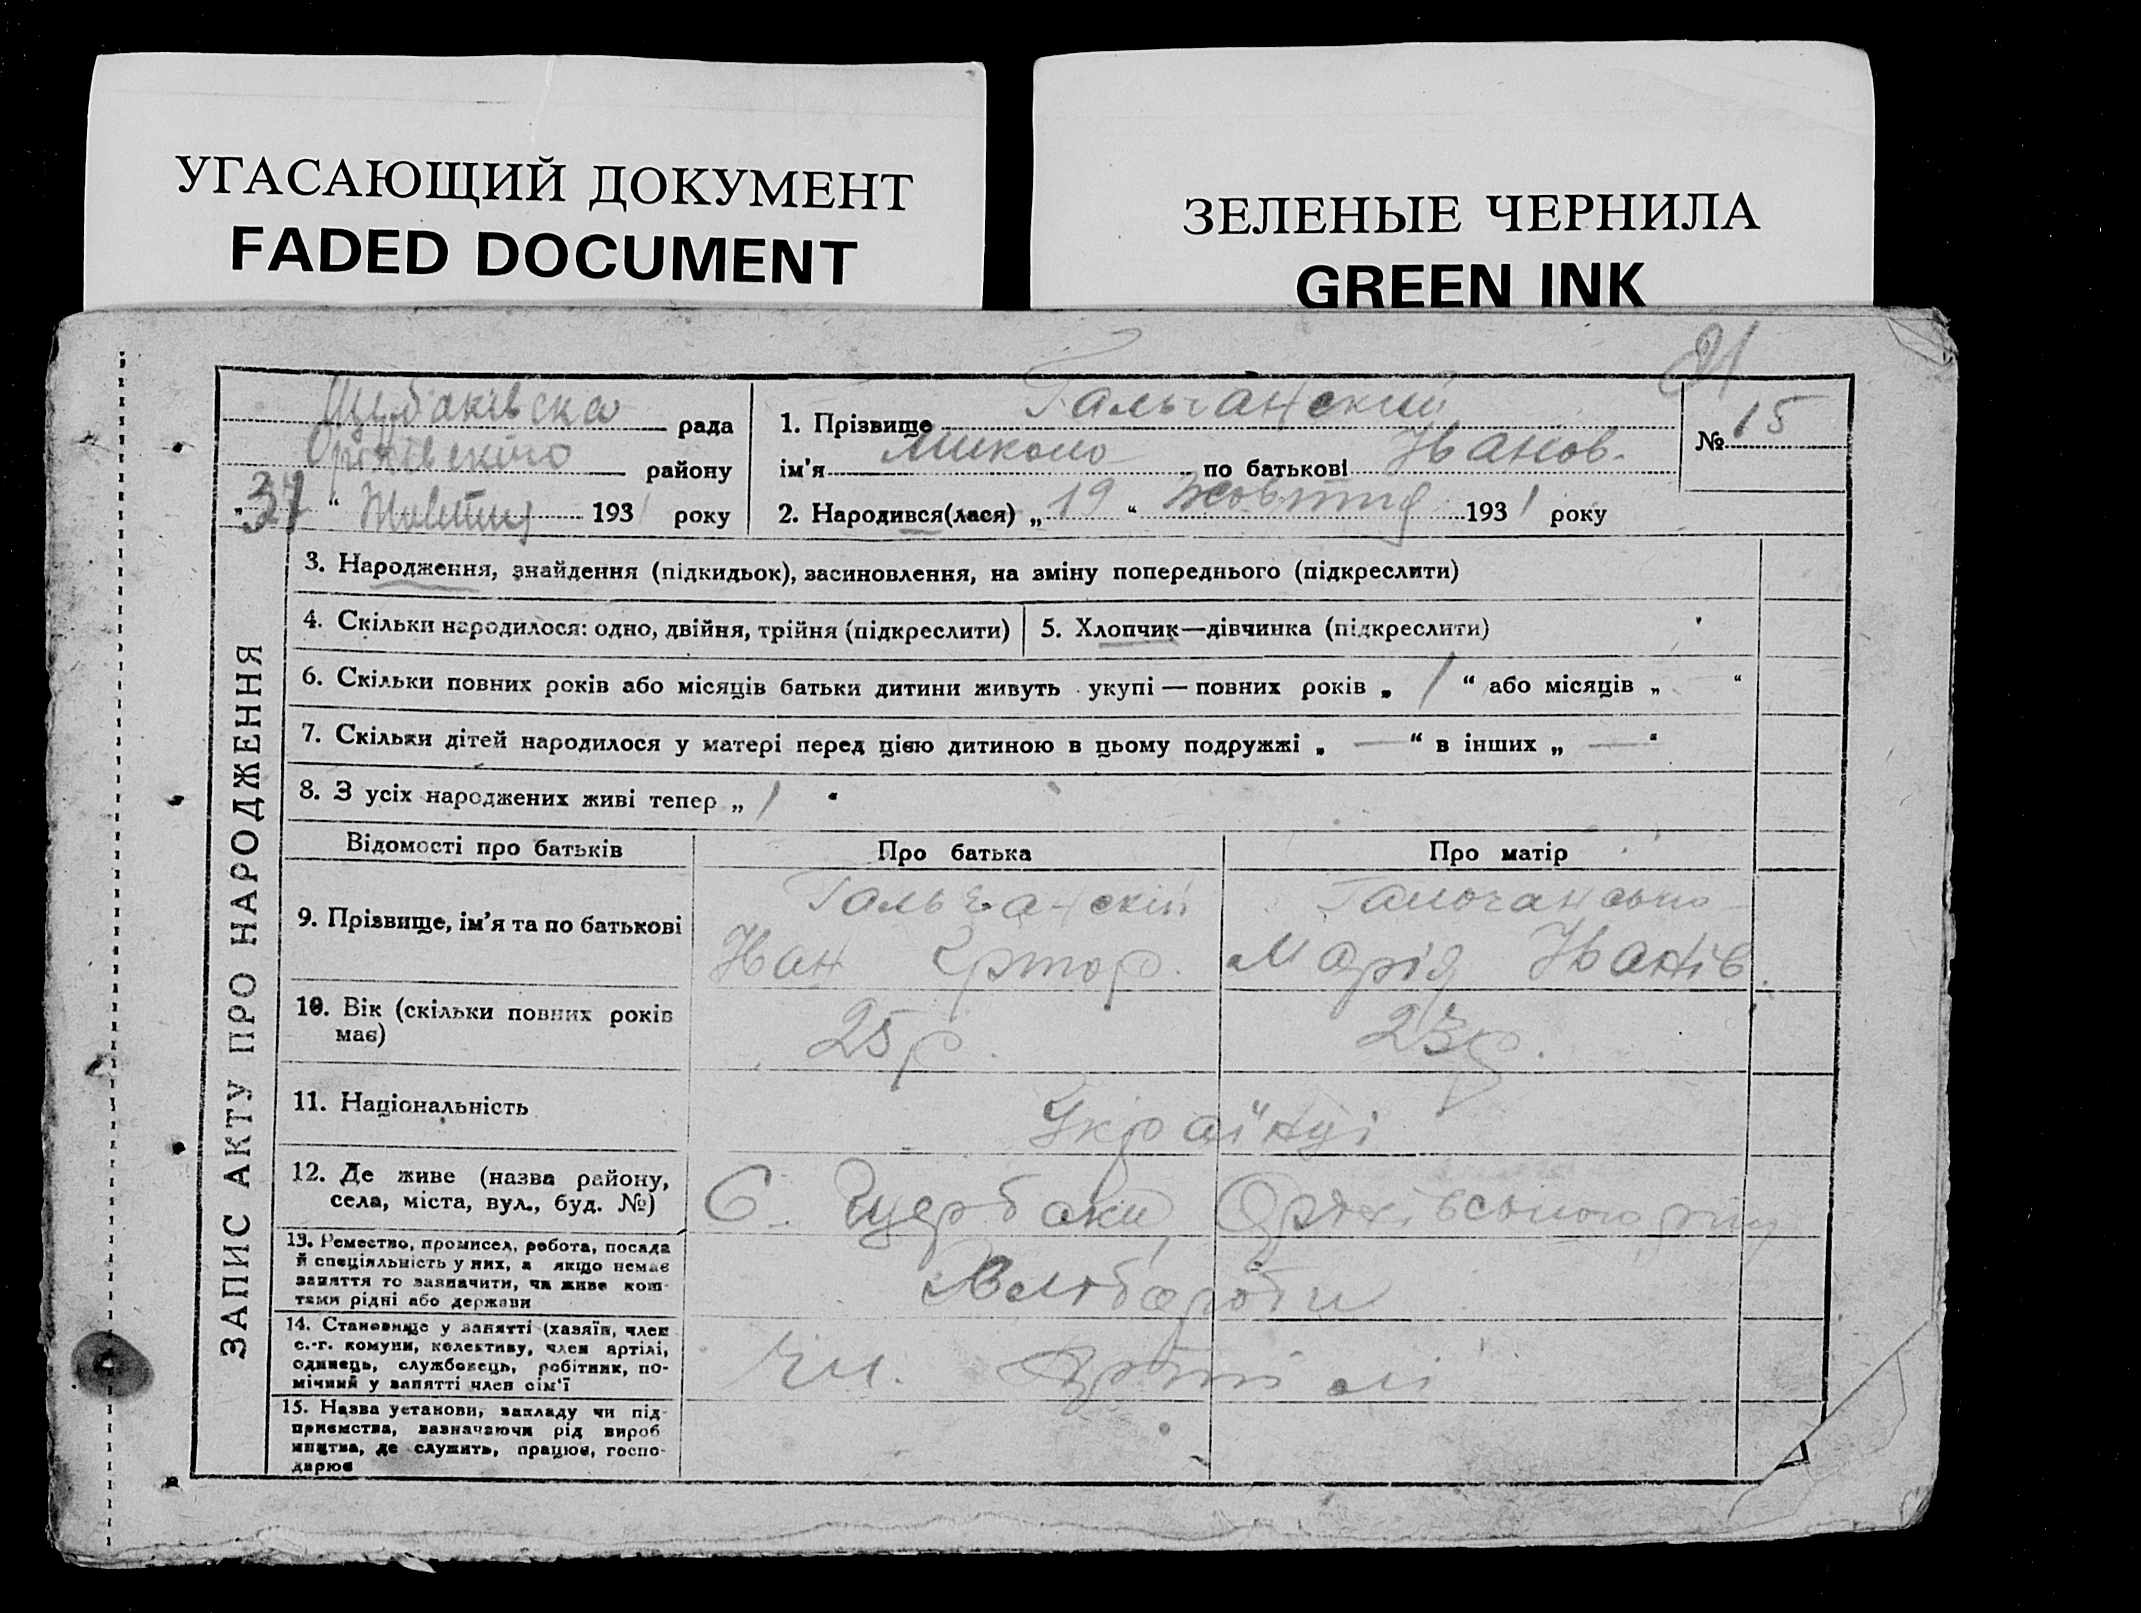 УГАСАЮЩИЙ ДОКУМЕНТ
FADED DOCUMENT
ЗЕЛЕНЫЕ ЧЕРНИЛА
GREEN INK
21
Щербаківска рада
Оріхівського району
"31" Жовтня 1931 року
1. Прізвище Гальчанский
ім'я Миколо по батькові Іванов.
№ 15
2. Народився(лася) „19“ Жовтня 1931 року
ЗАПИС АКТУ ПРО НАРОДЖЕННЯ
3. Народження, знайдення (підкидьок), засиновлення, на зміну попереднього (підкреслити)
4. Скільки народилося: одно, двійня, трійня (підкреслити)
5. Хлопчик—дівчинка (підкреслити)
6. Скільки повних років або місяців батьки дитини живуть укупі — повних років „ 1 “ або місяців „ “
7. Скільки дітей народилося у матері перед цією дитиною в цьому подружжі „ — “ в інших „ — “
8. З усіх народжених живі тепер „ 1 “
Відомості про батьків
Про батька
Про матір
9. Прізвище, ім'я та по батькові
Гальчанскій
Іван
Гальчансько
Марія Іванів.
10. Вік (скільки повних років
має)
25 р.
23 р.
11. Національність
Українці
12. Де живе (назва району,
села, міста, вул., буд. №)
С. Щербаки Оріхівського р-ну
13. Ремество, промисел, робота, посада
й спеціяльність у них, а якщо немає
заняття то зазначити, чи живе кош-
тами рідні або держави
Хлібороби
14. Становище у занятті (хазяїн, член
с.-г. комуни, колективу, член артілі,
одинець, службовець, робітник, по-
мічний у занятті член сім'ї
Чл. Артілі
15. Назва установи, закладу чи під-
приємства, зазначаючи рід вироб
ництва, де служить, працює, госпо-
дарює